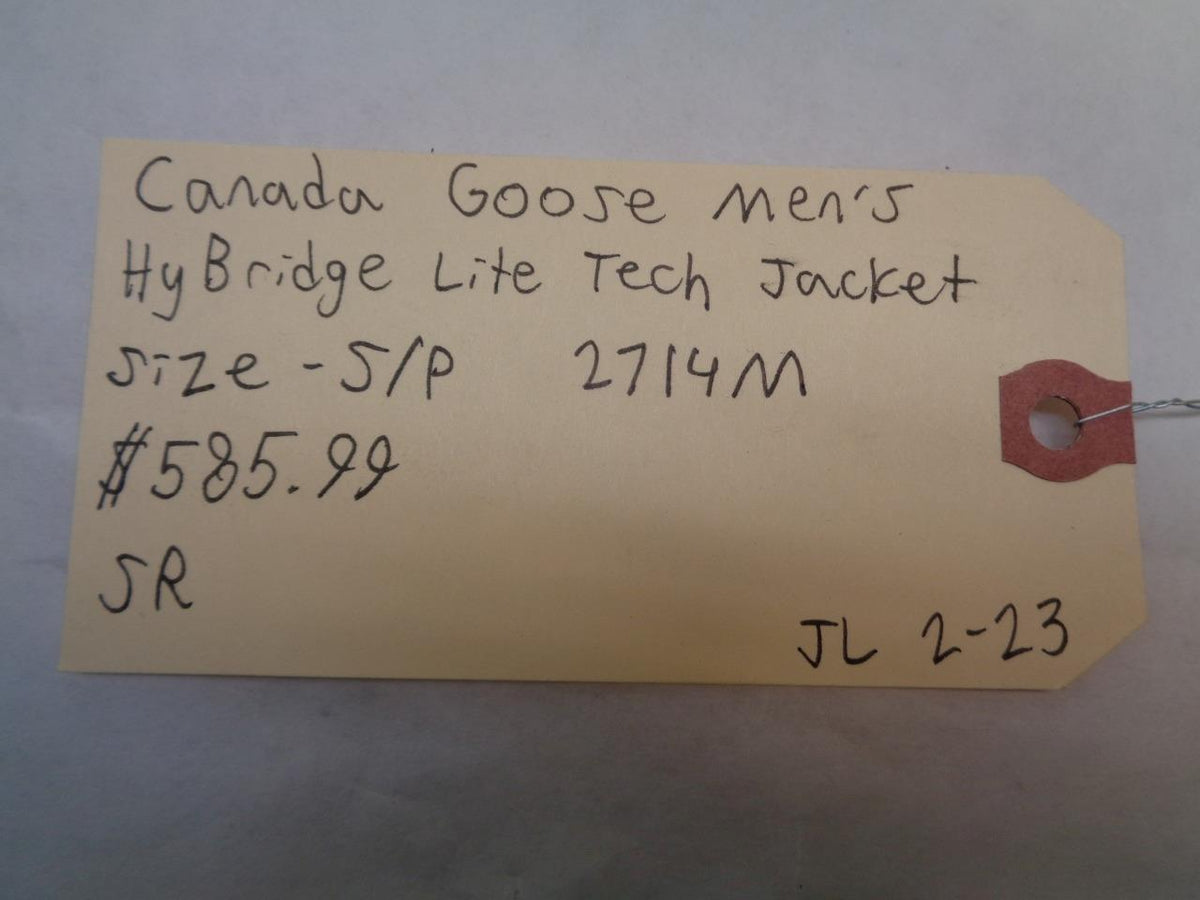 Canada Goose Men's
HyBridge Lite Tech Jacket
Size - S/P 2714M
$585.99
SR
JL 2-23